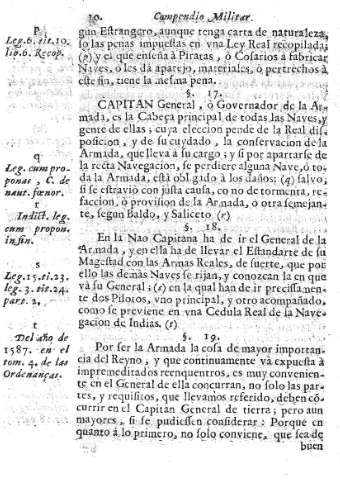 10. Compendio Militar.
gun Estrangero, aunque tenga carta de naturaleza,
so las penas impuestas en vna Ley Real recopilada;
(p) y el que enseña à Piratas, ò Cosarios à fabricar
Naves, ò les dà aparejo, materiales, ò pertrechos à
este fin, tiene la mesma pena.
§. 17.
CAPITAN General, ò Governador de la Ar-
mada, es la Cabeça principal de todas las Naves, y
gente de ellas; cuya eleccion pende de la Real dis-
posicion, y de su cuydado, la conservacion de la
Armada, que lleva à su cargo; y si por apartarse de
la recta Navegacion, se perdiere alguna Nave, ò to-
da la Armada, està obligado à los daños; (q) salvo;
si se estraviò con justa causa, co no de tormenta, re-
faccion, ò provision de la Armada, ò otra semejan-
te, segun Baldo, y Saliceto (r)
§. 18.
En la Nao Capitana ha de ir el General de la
Armada, y en ella ha de llevar el Estandarte de su
Magestad con las Armas Reales, de suerte, que por
ello las demàs Naves se rijan, y conozcan la en que
và su General; (s) en la qual han de ir precissamen-
te dos Pilotos, vno principal, y otro acompañado,
como se previene en vna Cedula Real de la Nave-
gacion de Indias. (t)
§. 19.
Por ser la Armada la cosa de mayor importan-
cia del Reyno, y que continuamente và expuesta à
impremeditados reenquentros, es muy convenien-
te en el General de ella concurran, no solo las par-
tes, y requisitos, que llevamos referido, deben cõ-
currir en el Capitan General de tierra; pero aun
mayores, si se pudiessen considerar: Porque en
quanto à lo primero, no solo conviene, que sea de
buen
P
Leg. 6. tit. 10.
lib. 6. Recop.
q
Leg. cum pro-
ponas, C. de
naut. fœnor.
r
In dict. leg.
cum propon.
in fin.
s
Leg. 15. ti. 23.
leg. 3. tit. 24.
part. 2.
t
Del año de
1587. en el
tom. 4. de las
Ordenanças.